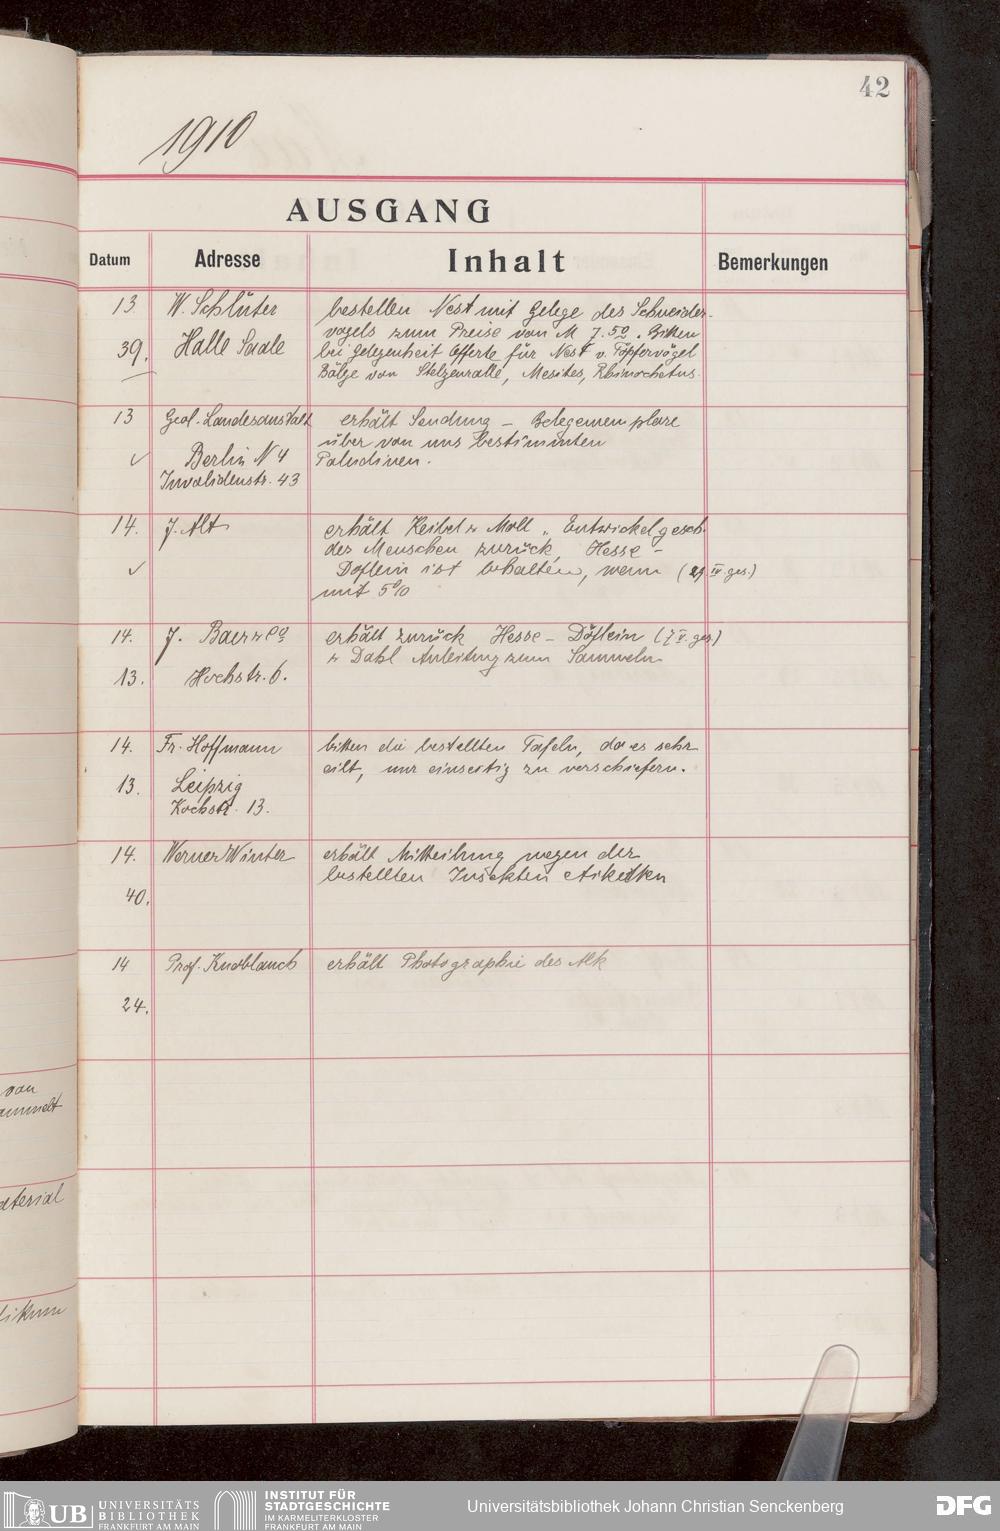 42
1910
AUSGANG
Datum Adresse Inhalt Bemerkungen
13 W. Schlüter bestellen Nest mit Gelege des Schneider-
vogels zum Preise von M 7.50. Bitten
39. Halle Saale bei Gelegenheit Offerte für Nest v. Töpfervögel
Bälge von Stelzenralle, Mesites, Rhinochetus.
13 Geol. Landesanstalt erhält Sendung – Belegexemplare
über von uns bestimmten
✓ Berlin N 4 Paludinen.
Invalidenstr. 43
14. J. Alt erhält Keibel & Moll „ Entwickelgesch.
des Menschen zurück, Hesse –
✓ Doflein ist behalten, wenn ( IV ges.)
mit 5%
14. J. Baer & Co erhält zurück Hesse – Döflein (7 V. ges.)
& Dahl Anleitung zum Sammeln
13. Hochstr. 6.
14. Fr. Hoffmann bitten die bestellten Tafeln, da es sehr
eilt, nur einseitig zu verschiefern.
13. Leipzig
Kochstr. 13.
14. Werner Winter erhält Mitteilung wegen der
bestellten Insekten etiketten
40.
14 Prof. Knoblauch erhält Photographie des Alk
24.
von
ammelt
aterial
ikum
UB UNIVERSITÄTS
BIBLIOTHEK
FRANKFURT AM MAIN
INSTITUT FÜR
STADTGESCHICHTE
IM KARMELITERKLOSTER
FRANKFURT AM MAIN
Universitätsbibliothek Johann Christian Senckenberg
DFG